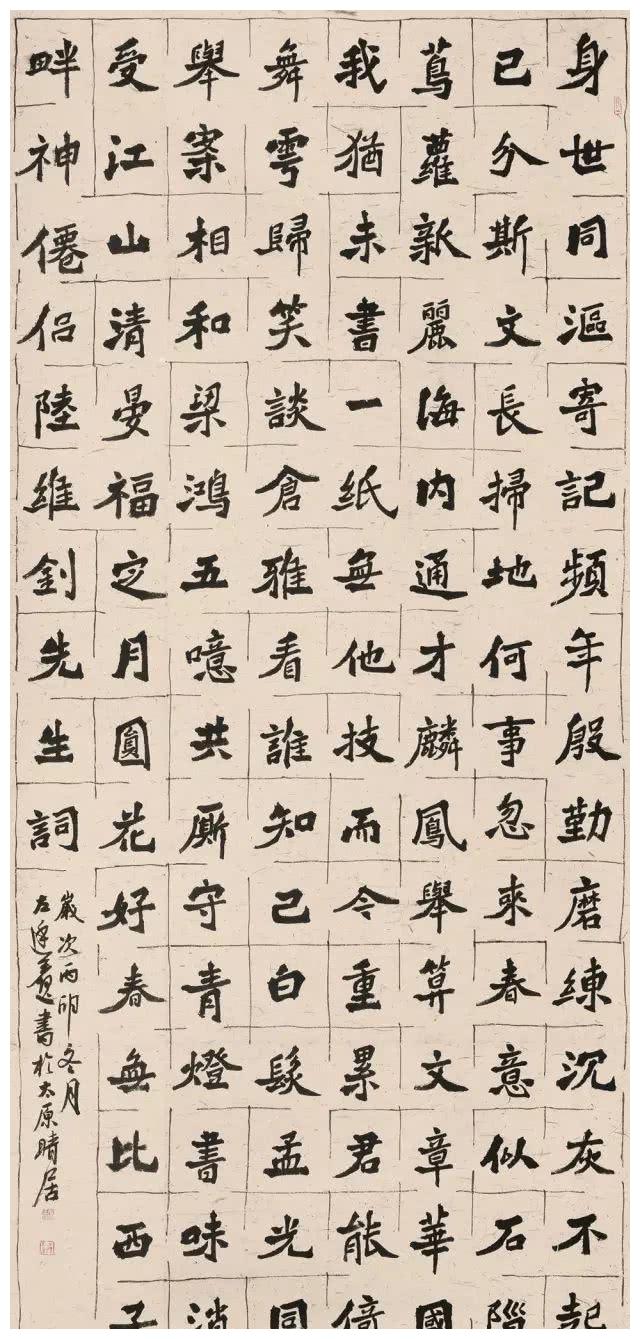 身世同漚寄記頻年殷勤磨練沉灰不起
已分斯文長掃地何事忽來春意似石
蔦蘿新麗海內通才麟鳳舉算文章華國
我猶未書一紙無他技而今重累君能倚
舞雩歸笑談倉雅看誰知己白髮孟光同
舉案相和梁鴻五噫共廝守青燈書味消
受江山清晏福定月圓花好春無比西子
畔神僊侶陸維釗先生詞
歲次丙冬月
書於太原晴居